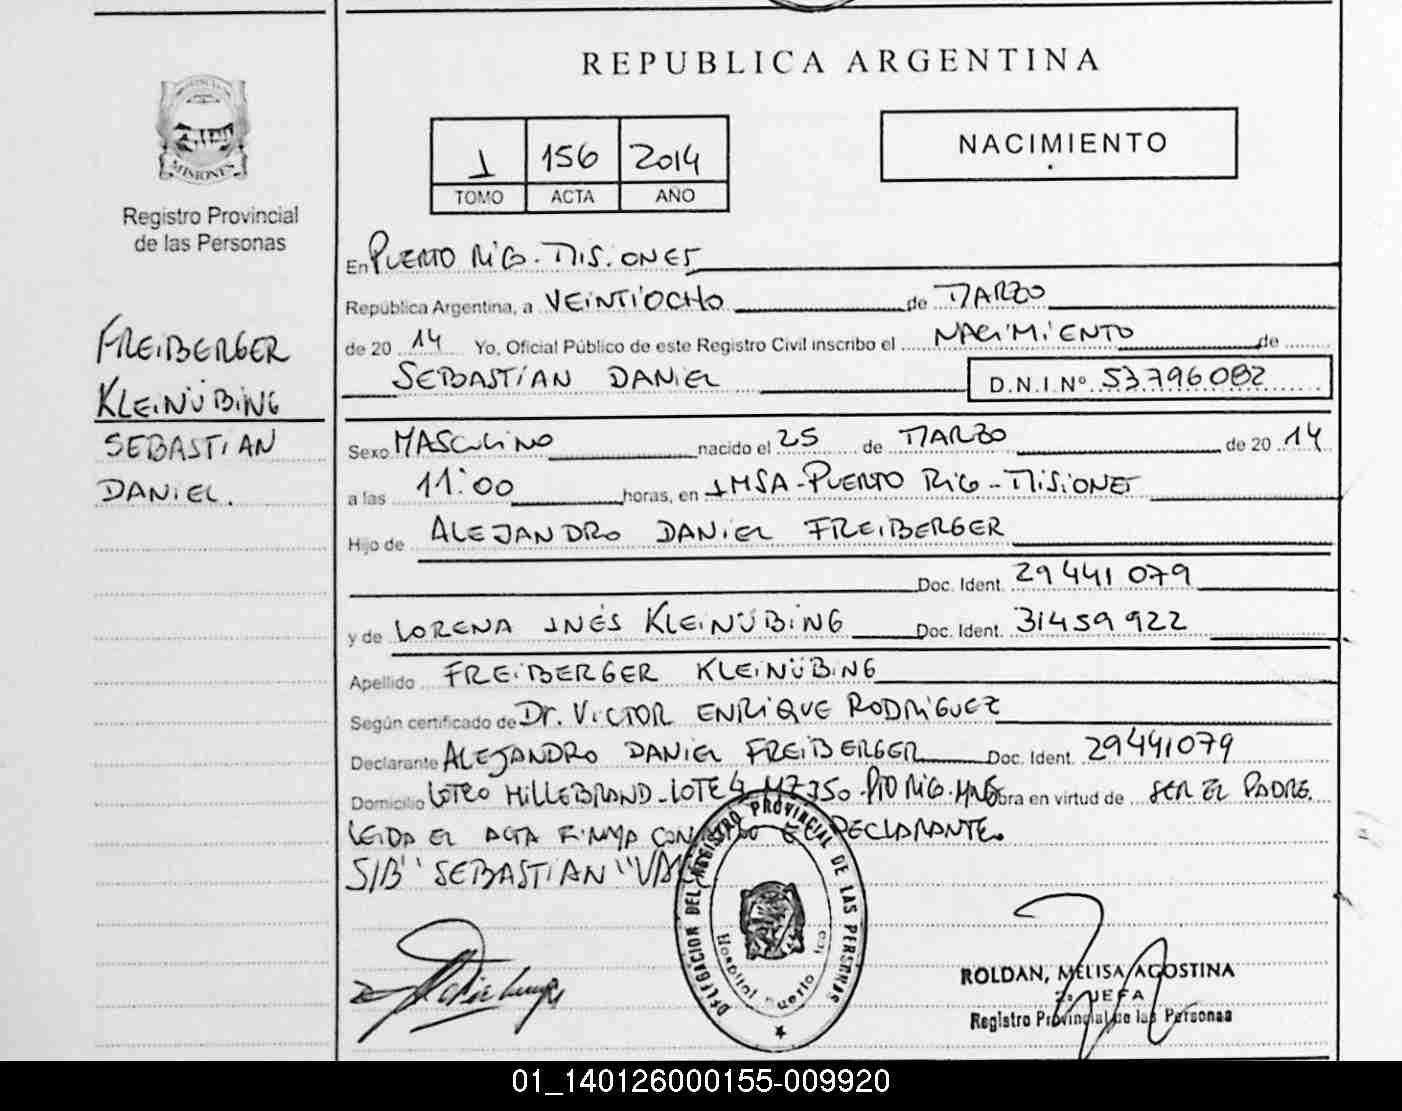 REPUBLICA ARGENTINA
MISIONES
Registro Provincial
de las Personas
1 156 2014
TOMO ACTA AÑO
NACIMIENTO
FREIBERGER
KLEINÜBING
SEBASTIAN
DANIEL.
En PUERTO RICO - MISIONES
República Argentina, a VEINTIOCHO de MARZO
de 20 14 Yo, Oficial Público de este Registro Civil inscribo el NACIMIENTO de
SEBASTIAN DANIEL D.N.I.Nº 53.796.082
Sexo MASCULINO nacido el 25 de MARZO de 20 14
a las 11:00 horas, en IMSA - PUERTO RICO - MISIONES
Hijo de ALEJANDRO DANIEL FREIBERGER
Doc. Ident. 29 441 079
y de LORENA INÉS KLEINÜBING Doc. Ident. 31459922
Apellido FREIBERGER KLEINÜBING
Según certificado de Dr. VICTOR ENRIQUE RODRIGUEZ
Declarante ALEJANDRO DANIEL FREIBERGER Doc. Ident. 29441079
Domicilio LOTEO HILLEBRAND - LOTE 4 MZ 350 - PTO RICO - MNES obra en virtud de SER EL PADRE.
LEIDA EL ACTA FIRMA CONMIGO EL DECLARANTE.
S/B "SEBASTIAN" VALE
DELEGACION DEL REGISTRO PROVINCIAL DE LAS PERSONAS
Hospital Puerto Rico
ROLDAN, MELISA AGOSTINA
2a JEFA
Registro Provincial de las Personas
01_140126000155-009920